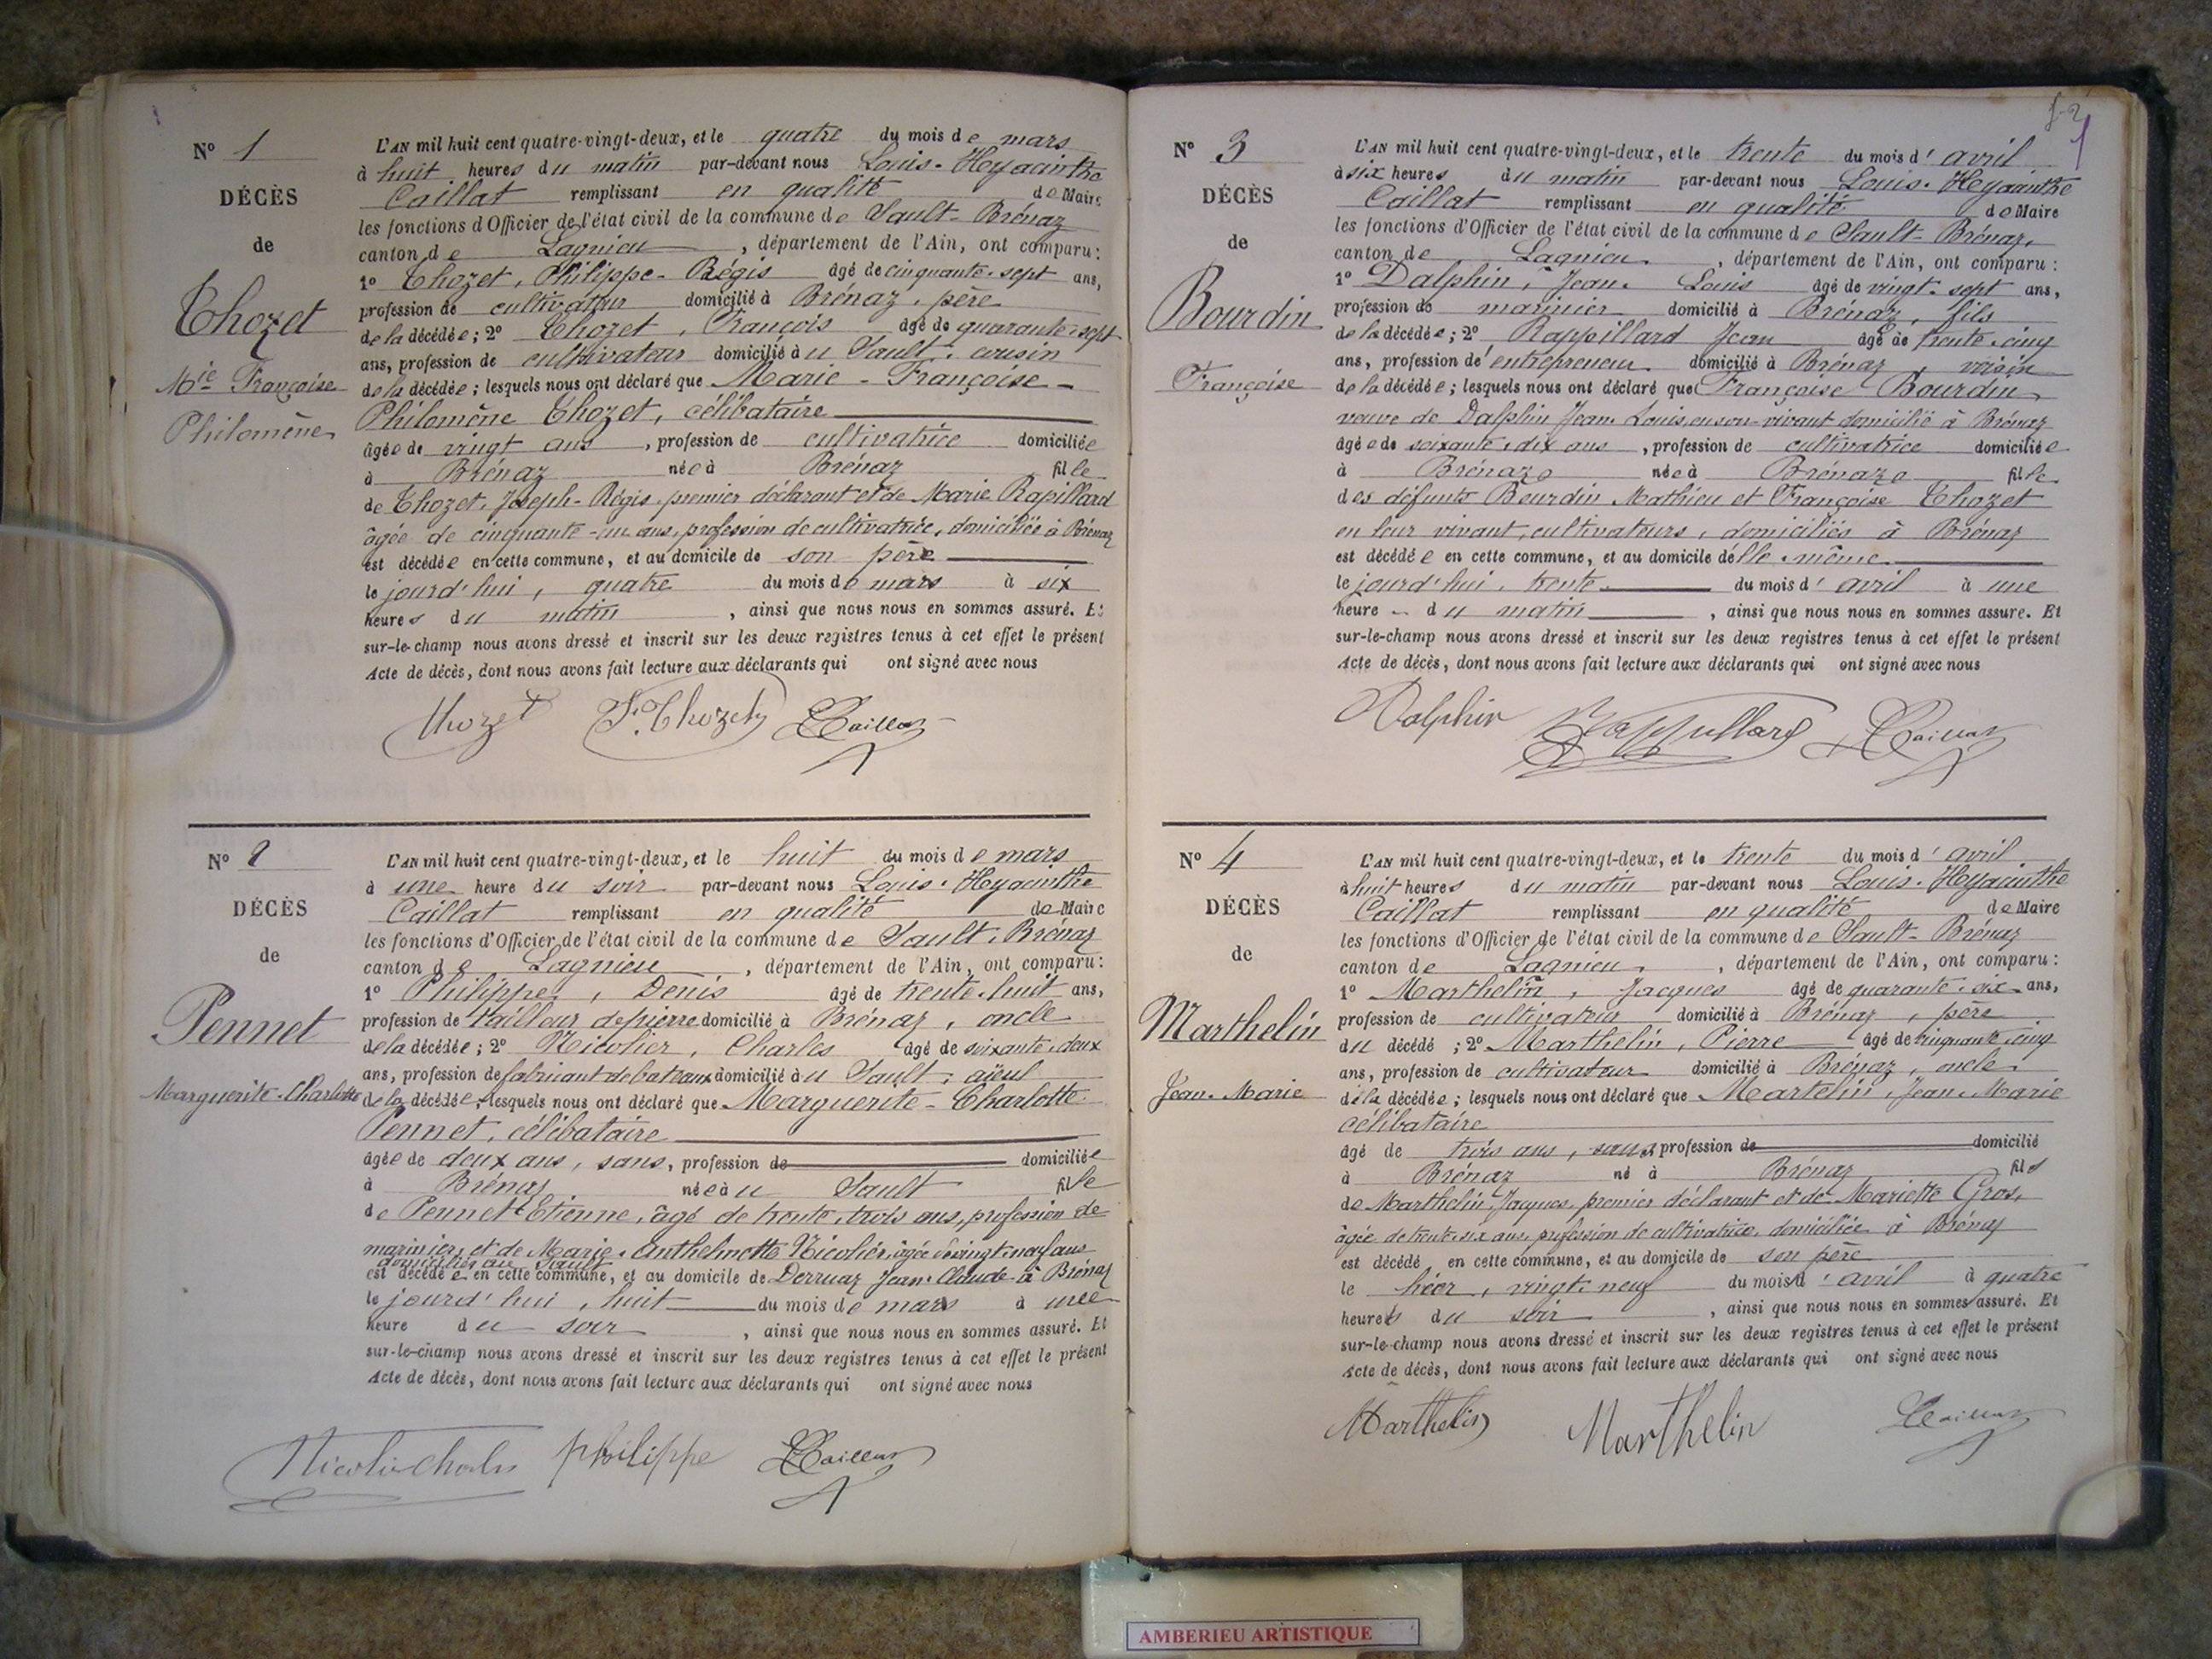 Nº 1
DÉCÈS
de
Thozet
Mie Françoise
Philomène
L'AN mil huit cent quatre-vingt-deux, et le quatre du mois de mars
à huit heures du matin par-devant nous Louis-Heyacinthe
Caillat remplissant en qualité de Maire
les fonctions d'Officier de l'état civil de la commune de Sault-Brénaz
canton de Lagnieu, département de l'Ain, ont comparu:
1º Thozet, Philippe-Régis âgé de cinquante-sept ans,
profession de cultivateur domicilié à Brénaz, père
de la décédée; 2º Thozet, François âgé de quarante-sept
ans, profession de cultivateur domicilié à u Sault, cousin
de la décédée; lesquels nous ont déclaré que Marie-Françoise-
Philomène Thozet, célibataire
âgée de vingt ans, profession de cultivatrice domiciliée
à Brénaz née à Brénaz fille
de Thozet, Joseph-Régis, premier déclarant et de Marie Rapillard
âgée de cinquante-un ans, profession de cultivatrice, domiciliée à Brénaz
est décédée en cette commune, et au domicile de son père
le jourd'hui, quatre du mois de mars à six
heures du matin, ainsi que nous nous en sommes assuré. Et
sur-le-champ nous avons dressé et inscrit sur les deux registres tenus à cet effet le présent
Acte de décès, dont nous avons fait lecture aux déclarants qui ont signé avec nous
Thozet F. Thozet LCaillat
Nº 2
DÉCÈS
de
Pennet
Marguerite-Charlotte
L'AN mil huit cent quatre-vingt-deux, et le huit du mois de mars
à une heure du soir par-devant nous Louis-Heyacinthe
Caillat remplissant en qualité de Maire
les fonctions d'Officier de l'état civil de la commune de Sault-Brénaz
canton de Lagnieu, département de l'Ain, ont comparu:
1º Philippe, Denis âgé de trente-huit ans,
profession de tailleur de pierre domicilié à Brénaz, oncle
de la décédée; 2º Nicolier, Charles âgé de soixante-deux
ans, profession de fabricant de bateaux domicilié à u Sault, aïeul
de la décédée; lesquels nous ont déclaré que Marguerite-Charlotte
Pennet, célibataire
âgée de deux ans, sans, profession de domiciliée
à Brénaz née à u Sault fille
de Pennet Etienne, âgé de trente-trois ans, profession de
marinier, et de Marie-Anthelmette Nicolier, âgée de vingt-neuf ans
domiciliés au Sault
est décédée en cette commune, et au domicile de Derruaz Jean-Claude à Brénaz
le jourd'hui, huit du mois de mars à une
heure du soir, ainsi que nous nous en sommes assuré. Et
sur-le-champ nous avons dressé et inscrit sur les deux registres tenus à cet effet le présent
Acte de décès, dont nous avons fait lecture aux déclarants qui ont signé avec nous
Philippe LCaillat
Nº 3
DÉCÈS
de
Bourdin
Françoise
L'AN mil huit cent quatre-vingt-deux, et le trente du mois d' avril
à six heures du matin par-devant nous Louis-Heyacinthe
Caillat remplissant en qualité de Maire
les fonctions d'Officier de l'état civil de la commune de Sault-Brénaz,
canton de Lagnieu, département de l'Ain, ont comparu:
1º Dalphin, Jean-Louis âgé de vingt-sept ans,
profession de marinier domicilié à Brénaz, fils
de la décédée; 2º Rappillard Jean âgé de trente-cinq
ans, profession d'entrepreneur domicilié à Brénaz, voisin
de la décédée; lesquels nous ont déclaré que Françoise Bourdin
veuve de Dalphin Jean-Louis, en son vivant domicilié à Brénaz
âgée de soixante-dix ans, profession de cultivatrice domiciliée
à Brénaz née à Brénaz fille
des défunts Bourdin Mathieu et Françoise Thozet
en leur vivant, cultivateurs, domiciliés à Brénaz
est décédée en cette commune, et au domicile d'elle-même
le jourd'hui, trente du mois d' avril à une
heure du matin, ainsi que nous nous en sommes assuré. Et
sur-le-champ nous avons dressé et inscrit sur les deux registres tenus à cet effet le présent
Acte de décès, dont nous avons fait lecture aux déclarants qui ont signé avec nous
Dalphin Rappillard LCaillat
Nº 4
DÉCÈS
de
Marthelin
Jean-Marie
L'AN mil huit cent quatre-vingt-deux, et le trente du mois d' avril
à huit heures du matin par-devant nous Louis-Heyacinthe
Caillat remplissant en qualité de Maire
les fonctions d'Officier de l'état civil de la commune de Sault-Brénaz
canton de Lagnieu, département de l'Ain, ont comparu:
1º Marthelin, Jacques âgé de quarante-six ans,
profession de cultivateur domicilié à Brénaz, père
du décédé; 2º Marthelin, Pierre âgé de cinquante-cinq
ans, profession de cultivateur domicilié à Brénaz, oncle
de la décédée; lesquels nous ont déclaré que Martelin, Jean-Marie
célibataire
âgé de trois ans, sans profession de domicilié
à Brénaz né à Brénaz fils
de Marthelin, Jacques, premier déclarant et de Mariette Gros,
âgée de trente-six ans, profession de cultivatrice, domiciliée à Brénaz
est décédé en cette commune, et au domicile de son père
le hier, vingt-neuf du mois d' avril à quatre
heures du soir, ainsi que nous nous en sommes assuré. Et
sur-le-champ nous avons dressé et inscrit sur les deux registres tenus à cet effet le présent
Acte de décès, dont nous avons fait lecture aux déclarants qui ont signé avec nous
Marthelin Marthelin LCaillat
AMBERIEU ARTISTIQUE